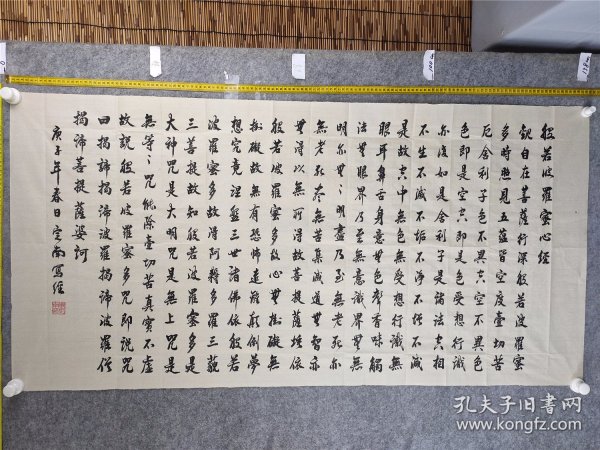 般若波羅蜜心經
觀自在菩薩行深般若波羅蜜
多時照見五蘊皆空度壹切苦
厄舍利子色不異空空不異色
色即是空空即是色受想行識
亦復如是舍利子是諸法空相
不生不滅不垢不淨不增不減
是故空中無色無受想行識無
眼耳鼻舌身意無色聲香味觸
法無眼界乃至無意識界無無
明亦無〻明盡乃至無老死亦
無老死盡無苦集滅道無智亦
無得以無所得故菩提薩埵依
般若波羅蜜多故心無掛礙無
掛礙故無有恐怖遠離顛倒夢
想究竟涅槃三世諸佛依般若
波羅蜜多故得阿耨多羅三藐
三菩提故知般若波羅蜜多是
大神咒是大明咒是無上咒是
無等〻咒能除壹切苦真實不虛
故說般若波羅蜜多咒即說咒
曰揭諦揭諦波羅揭諦波羅僧
揭諦菩提薩婆訶
庚子年春日寫經
孔夫子旧书网
www.kongfz.com